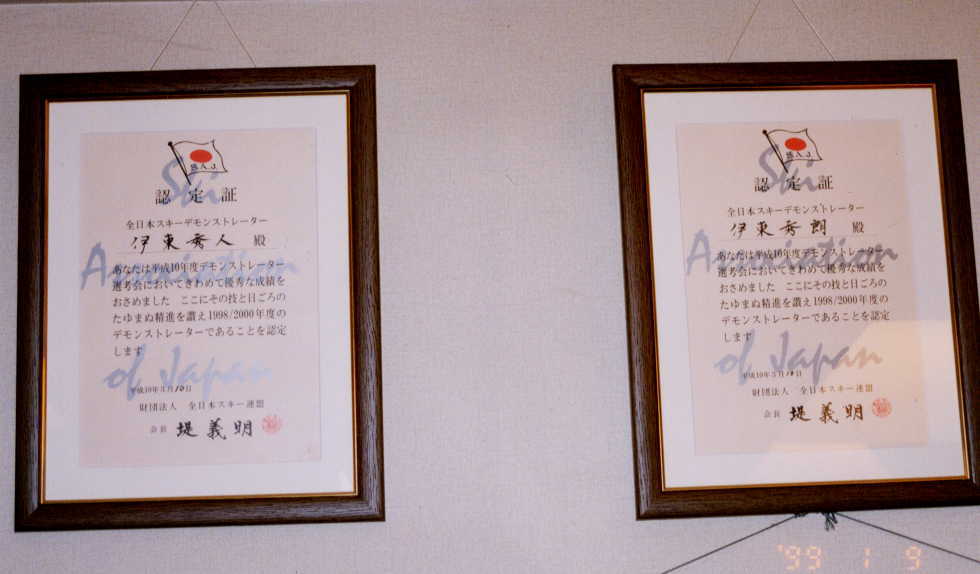 S.A.J.
Ski
認定証
全日本スキーデモンストレーター
伊東秀人 殿
Association
あなたは平成10年度デモンストレーター
選考会においてきわめて優秀な成績を
おさめました ここにその技と日ごろの
たゆまぬ精進を讃え1998/2000年度の
デモンストレーターであることを認定
します
of Japan
平成10年3月10日
財団法人 全日本スキー連盟
会長 堤義明
S.A.J.
Ski
認定証
全日本スキーデモンストレーター
伊東秀朗 殿
Association
あなたは平成10年度デモンストレーター
選考会においてきわめて優秀な成績を
おさめました ここにその技と日ごろの
たゆまぬ精進を讃え1998/2000年度の
デモンストレーターであることを認定
します
of Japan
平成10年3月10日
財団法人 全日本スキー連盟
会長 堤義明
'99 1 9